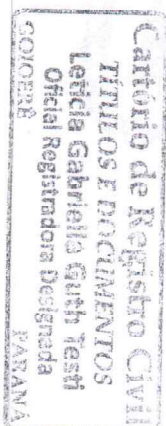 Cartório de Registro Civil
TÍTULOS E DOCUMENTOS
Letícia Gabriella Guth Testi
Oficial Registradora Designada
GOIOERÊ PARANÁ